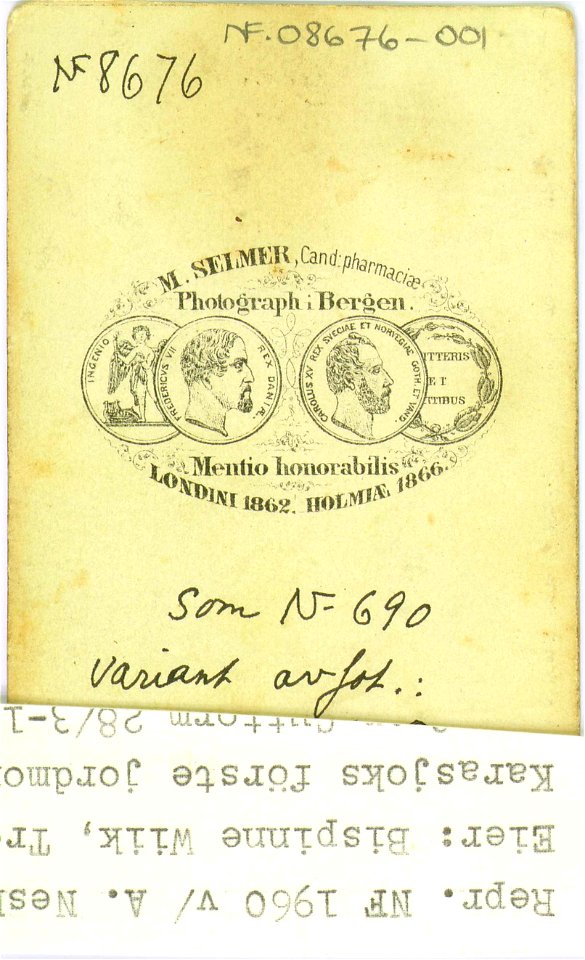 NF.08676-001
NF 8676
M. SELMER, Cand: pharmaciæ
Photograph i Bergen.
INGENIO
FREDERICVS VII REX DANIÆ.
CAROLUS XV REX SVECIAE ET NORVEGIAE GOTH. ET VAND.
ET
Mentio honorabilis
LONDINI 1862. HOLMIÆ 1866.
Som N= 690
variant av fot.:
Repr. NF 1960 v/ A.
Eier: Bispinne Wiik,
Karasjoks förste
Guttorm 28/3-1